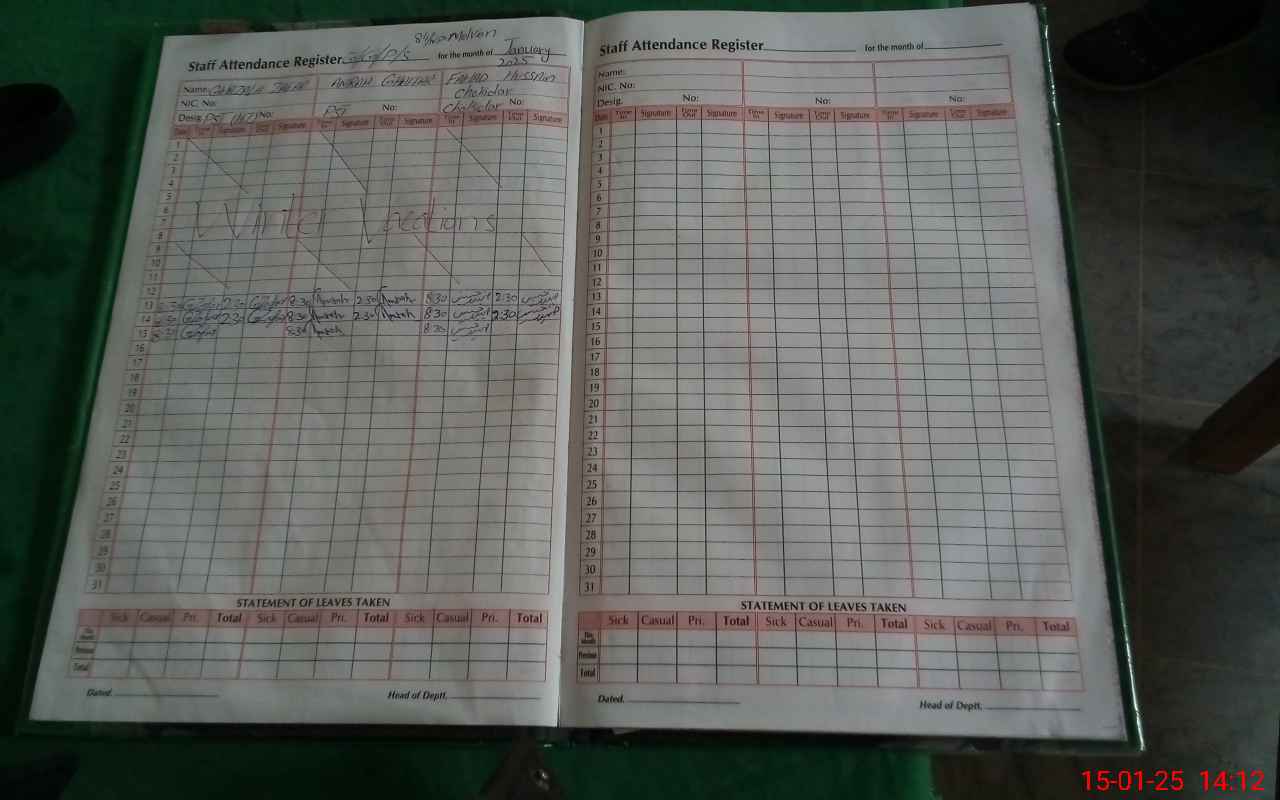 Staff Attendance Register for the month of January
2025
Name: FAHAD Hussain
NIC. No: Chokidar
Desig. PST No: PST No: Chokidar No:
Date Time In Signature Time Out Signature Time In Signature Time Out Signature Time In Signature Time Out Signature
1
2
3
4
5
6
7
Winter Vacations
8
9
10
11
12
13 8:30 2:30 8:30 2:30 8:30 2:30
14 8:30 2:30 8:30 2:30 8:30 2:30
15 8:30 8:30 8:30
16
17
18
19
20
21
22
23
24
25
26
27
28
29
30
31
STATEMENT OF LEAVES TAKEN
Sick Casual Pri. Total Sick Casual Pri. Total Sick Casual Pri. Total
This Month
Previous
Total
Dated. Head of Deptt.
Staff Attendance Register for the month of
Name:
NIC. No:
Desig. No: No: No:
Date Time In Signature Time Out Signature Time In Signature Time Out Signature Time In Signature Time Out Signature
1
2
3
4
5
6
7
8
9
10
11
12
13
14
15
16
17
18
19
20
21
22
23
24
25
26
27
28
29
30
31
STATEMENT OF LEAVES TAKEN
Sick Casual Pri. Total Sick Casual Pri. Total Sick Casual Pri. Total
This Month
Previous
Total
Dated. Head of Deptt.
15-01-25 14:12